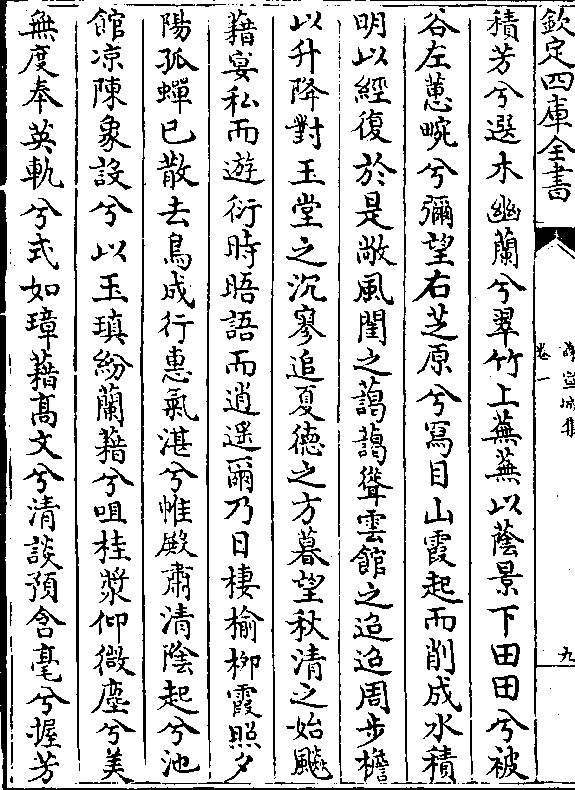 欽定四庫全書
謝宣城集
卷一
九
積芳兮選木幽蘭兮翠竹上蕪蕪以蔭景下田田兮被
谷左蕙畹兮彌望右芝原兮寫目山霞起而削成水積
明以經復於是敞風閨之藹藹聳雲館之迢迢周步檐
以升降對玉堂之沉寥追夏德之方暮望秋清之始飇
藉宴私而遊衍時晤語而逍遥爾乃日棲榆柳霞照夕
陽孤蟬已散去鳥成行惠氣湛兮帷殿肅清陰起兮池
館凉陳象設兮以玉瑱紛蘭藉兮咀桂漿仰微塵兮美
無度奉英軌兮式如璋藉髙文兮清談預含毫兮握芳